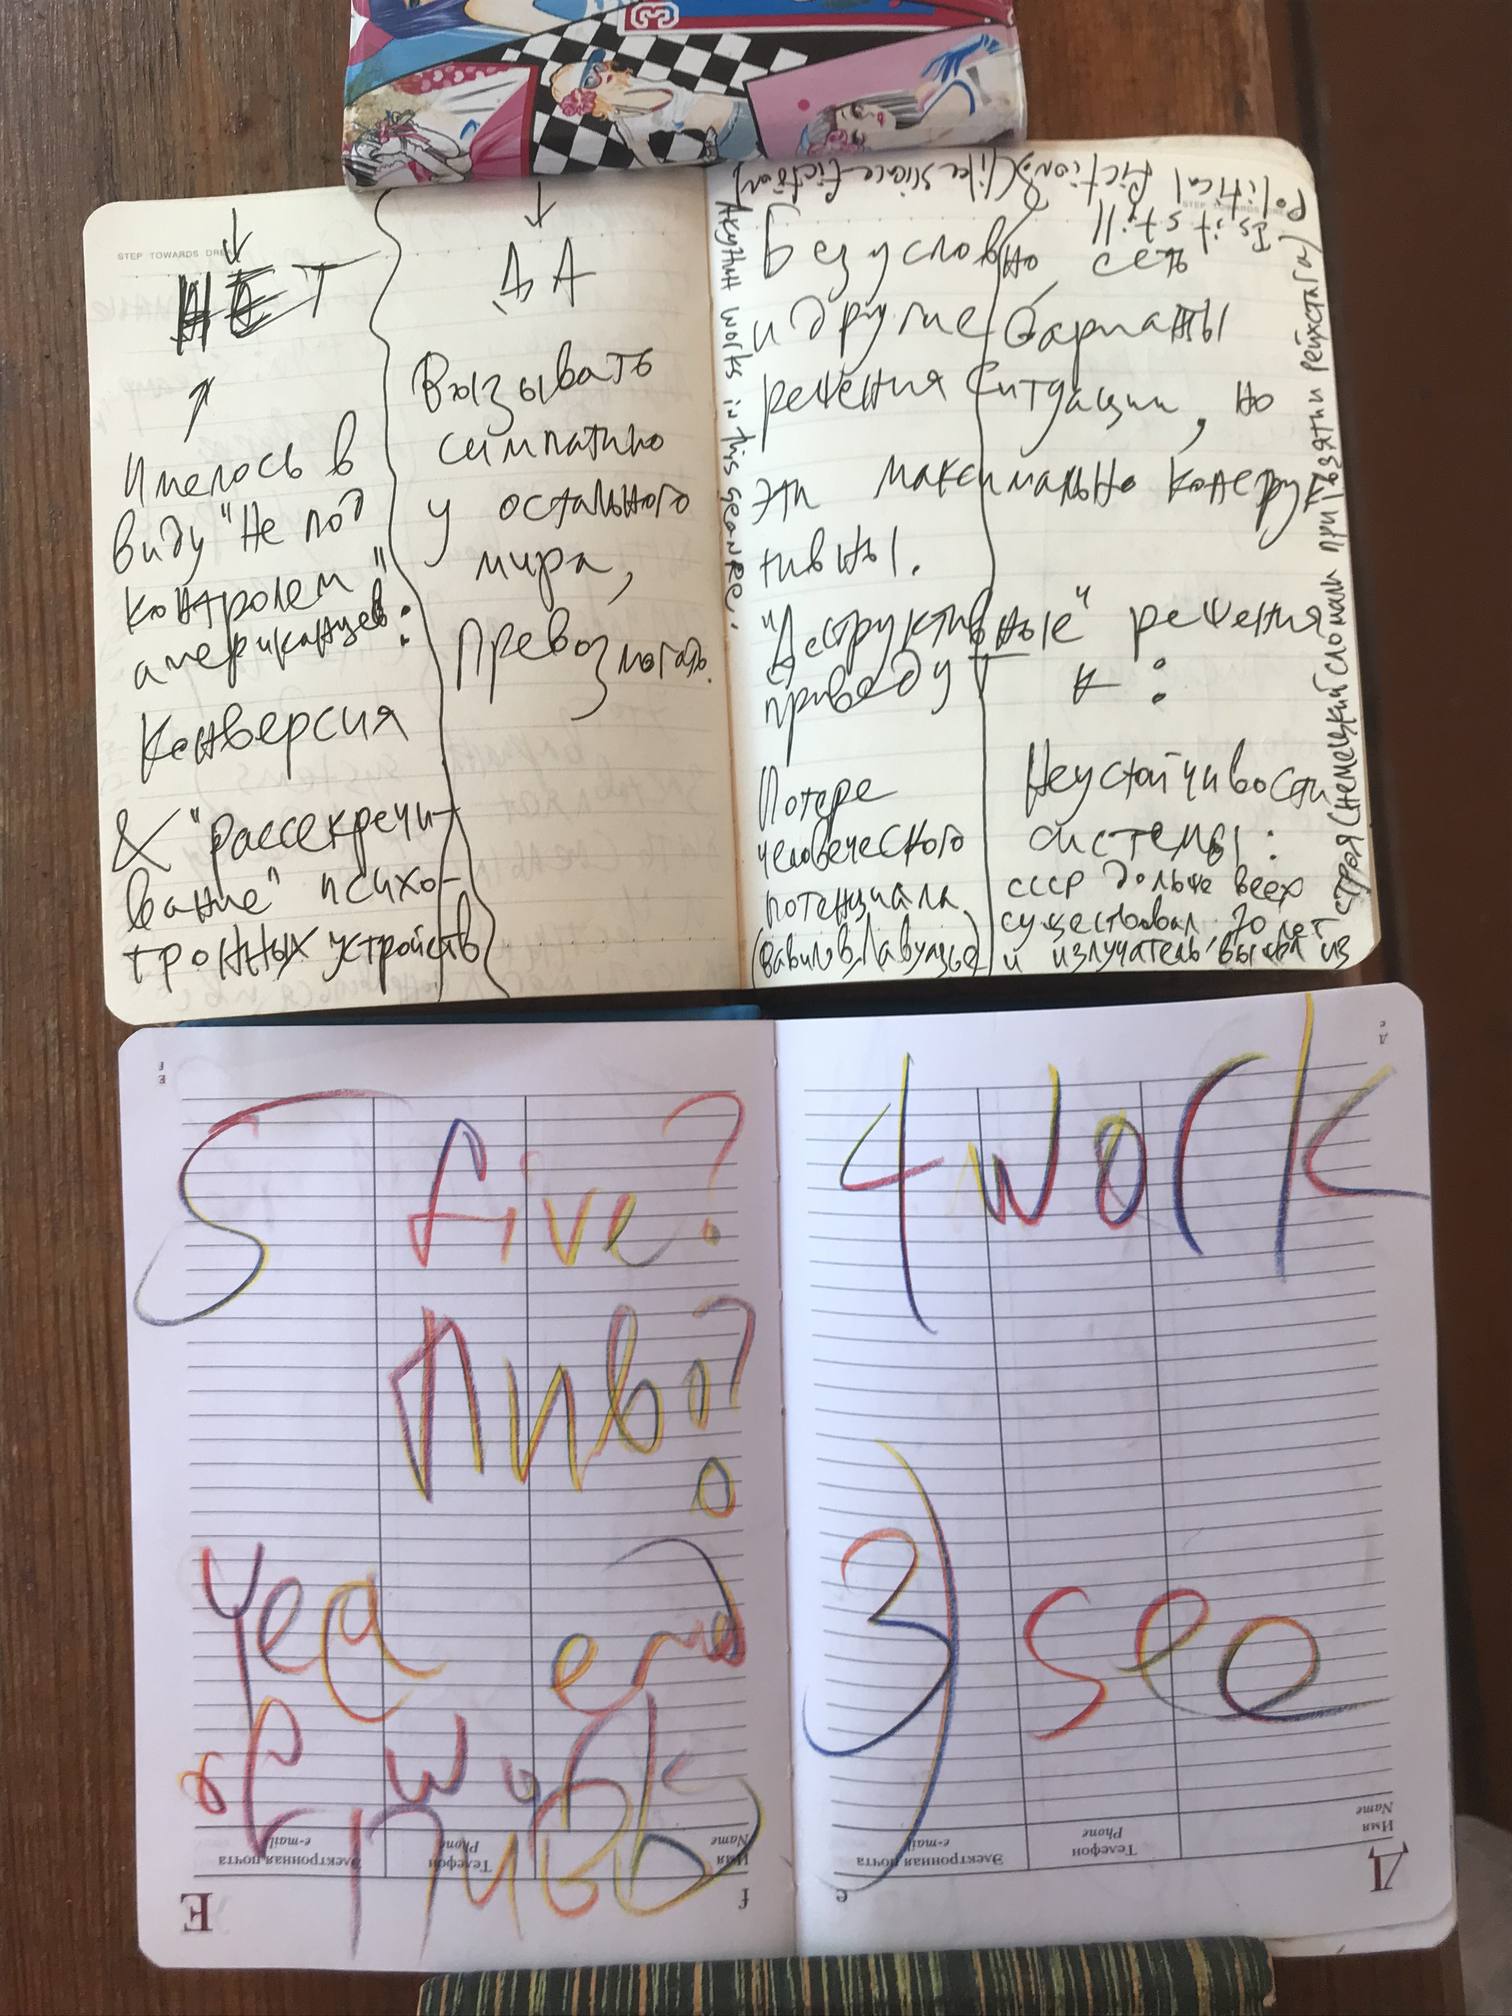 STEP TOWARDS DRE
НЕТ
Имелось в
виду "Не под
контролем"
американцев:
Конверсия
& "рассекречи-
вание" психо-
тронных устройств
ДА
Вызывать
симпатию
у остального
мира,
Превозмогать.
Акунин works in this geanre..
Political fiction? (like sciance fiction)
Is it still
Безусловно, есть
и другие варианты
решения ситуации, но
эти максимально конструк
тивны.
"Деструктивные" решения
приведут к:
Потере
человеческого
потенциала
(Вавилов, Лавуазье)
Неустойчивости
системы:
СССР дольше всех
существовал 70 лет
и излучатель вышел из
строя (немецкий сломали при взятии рейхстага)
5 five?
пиво?
Yea end
of work
пиво
Имя
Name
Телефон
Phone
Электронная почта
e-mail
E
f
4 work
3) see
Имя
Name
Телефон
Phone
Электронная почта
e-mail
Д
e